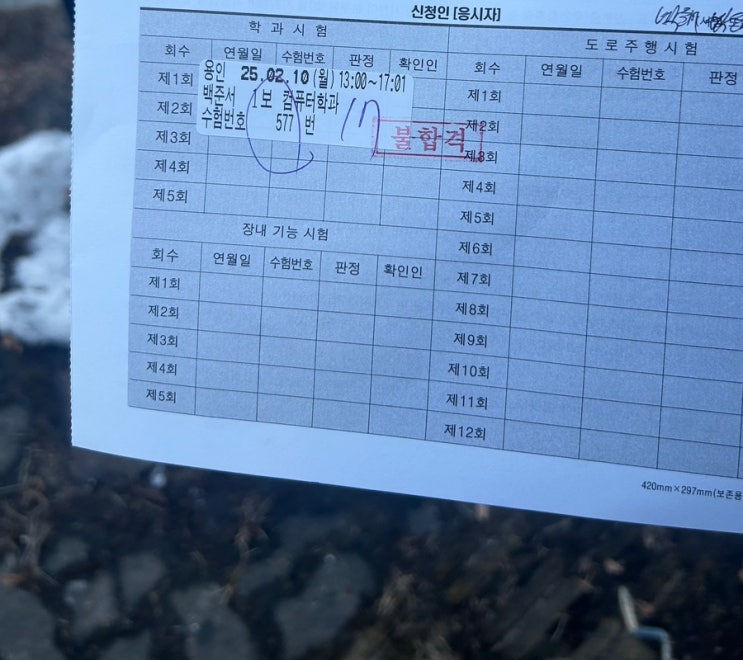 신청인 [응시자]
학 과 시 험
회수 연월일 수험번호 판정 확인인
제1회
제2회
제3회
제4회
제5회
용인 25.02.10 (월) 13:00~17:01
백준서 1보 컴퓨터학과
수험번호 577 번
불합격
장내 기능 시험
회수 연월일 수험번호 판정 확인인
제1회
제2회
제3회
제4회
제5회
도 로 주 행 시 험
회수 연월일 수험번호 판정
제1회
제2회
제3회
제4회
제5회
제6회
제7회
제8회
제9회
제10회
제11회
제12회
420mm×297mm(보존용